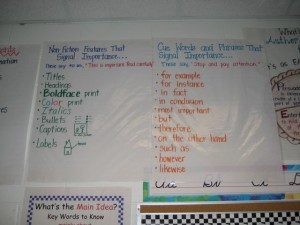 Non Fiction Features That
Signal Importance...
These say to us, "This is important. Read carefully."
Titles
Headings
Boldface print
Color print
Italics
Bullets
Captions
Labels
Cue Words and Phrases That
Signal Importance...
These say, "Stop and pay attention."
for example
for instance
in fact
in conclusion
most important
but
therefore
on the other hand
such as
however
likewise
What's the Main Idea?
Key Words to Know